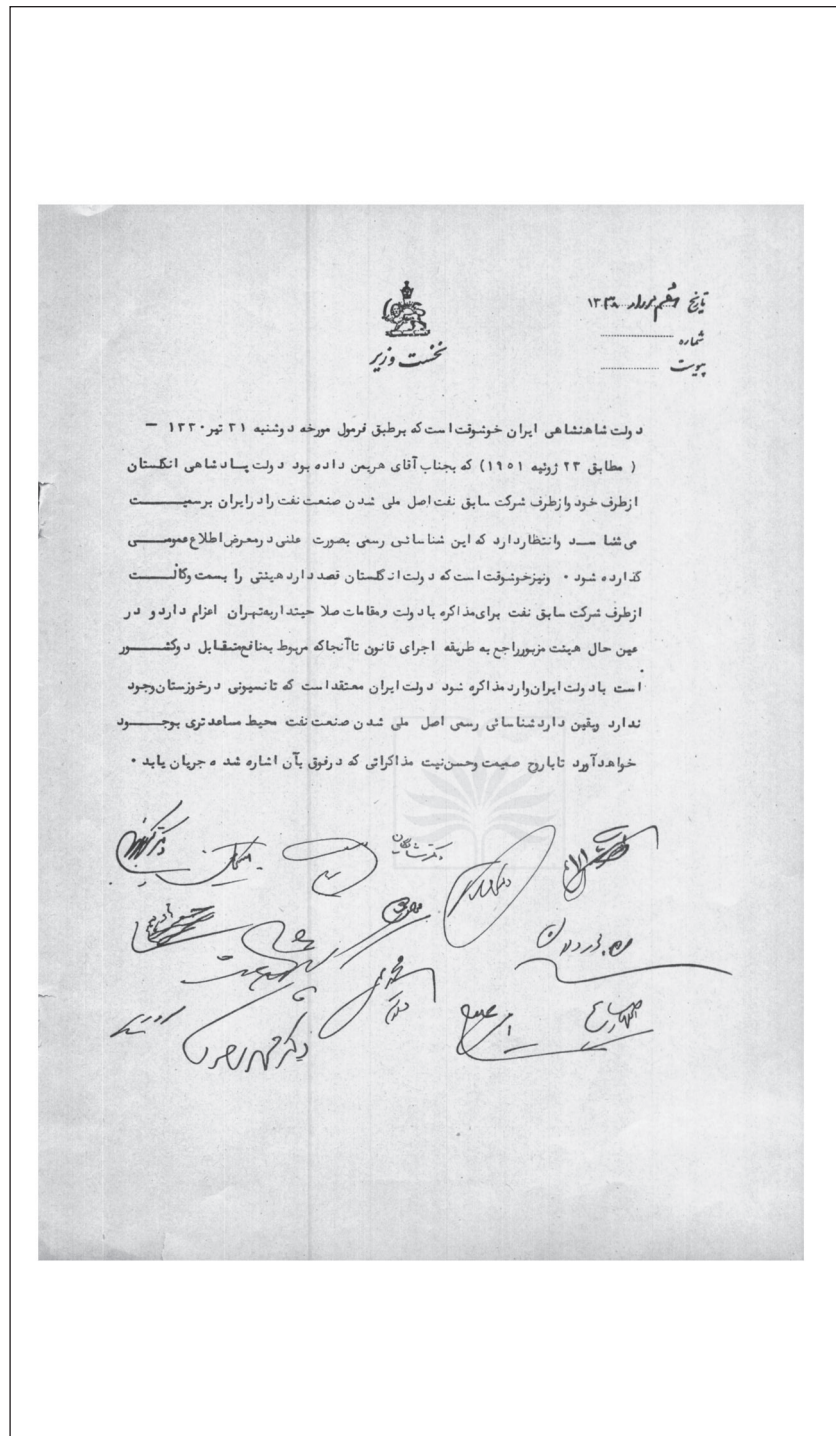 تاریخ هفتم مرداد ۱۳۳۰
شماره
پیوست
نخست وزیر
دولت شاهنشاهی ایران خوشوقت است که برطبق فرمول مورخه دوشنبه ۳۱ تیر ۱۳۳۰ –
( مطابق ۲۳ ژوئیه ۱۹۵۱) که بجناب آقای هریمن داده بود دولت پادشاهی انگلستان
ازطرف خود وازطرف شرکت سابق نفت اصل ملی شدن صنعت نفت رادرایران برسمیت
می شناسد وانتظاردارد که این شناسائی رسمی بصورت علنی درمعرض اطلاع عمومی
گذارده شود ۰ ونیزخوشوقت است که دولت انگلستان قصد دارد هیئتی را بسمت وکالت
ازطرف شرکت سابق نفت برای مذاکره بادولت ومقامات صلاحیتدار بتهران اعزام دارد و در
عین حال هیئت مزبورراجع به طریقه اجرای قانون تاآنجاکه مربوط بمنافع متقابل دوکشور
است بادولت ایران وارد مذاکره شود دولت ایران معتقد است که تانسیونی درخوزستان وجود
ندارد ویقین دارد شناسائی رسمی اصل ملی شدن صنعت نفت محیط مساعدتری بوجود
خواهدآورد تاباروح صمیمت وحسن نیت مذاکراتی که درفوق بآن اشاره شده جریان یابد ۰
دکتر شایگان